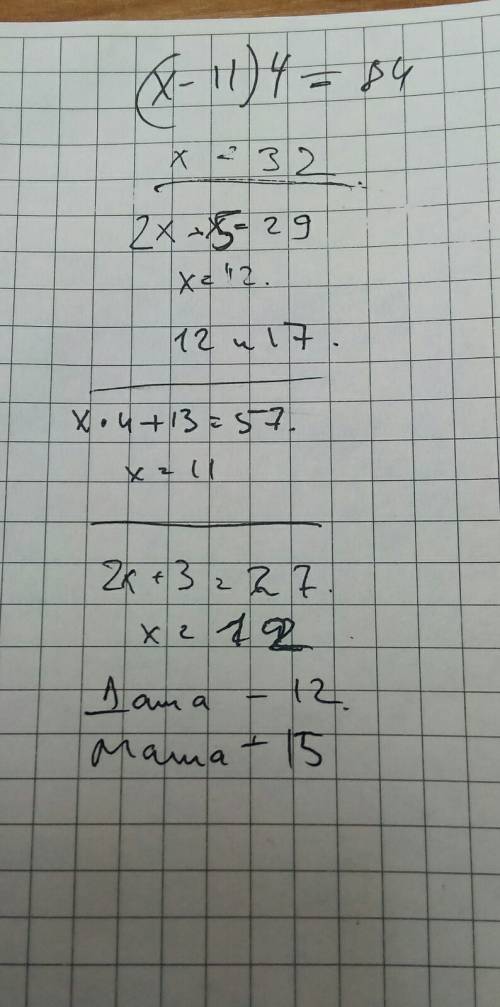 (x-11)4=84
x=32
2x+5=29
x=12.
12 и 17.
x•4+13=57.
x=11
2x+3=27.
x=12
Даша - 12.
Маша - 15